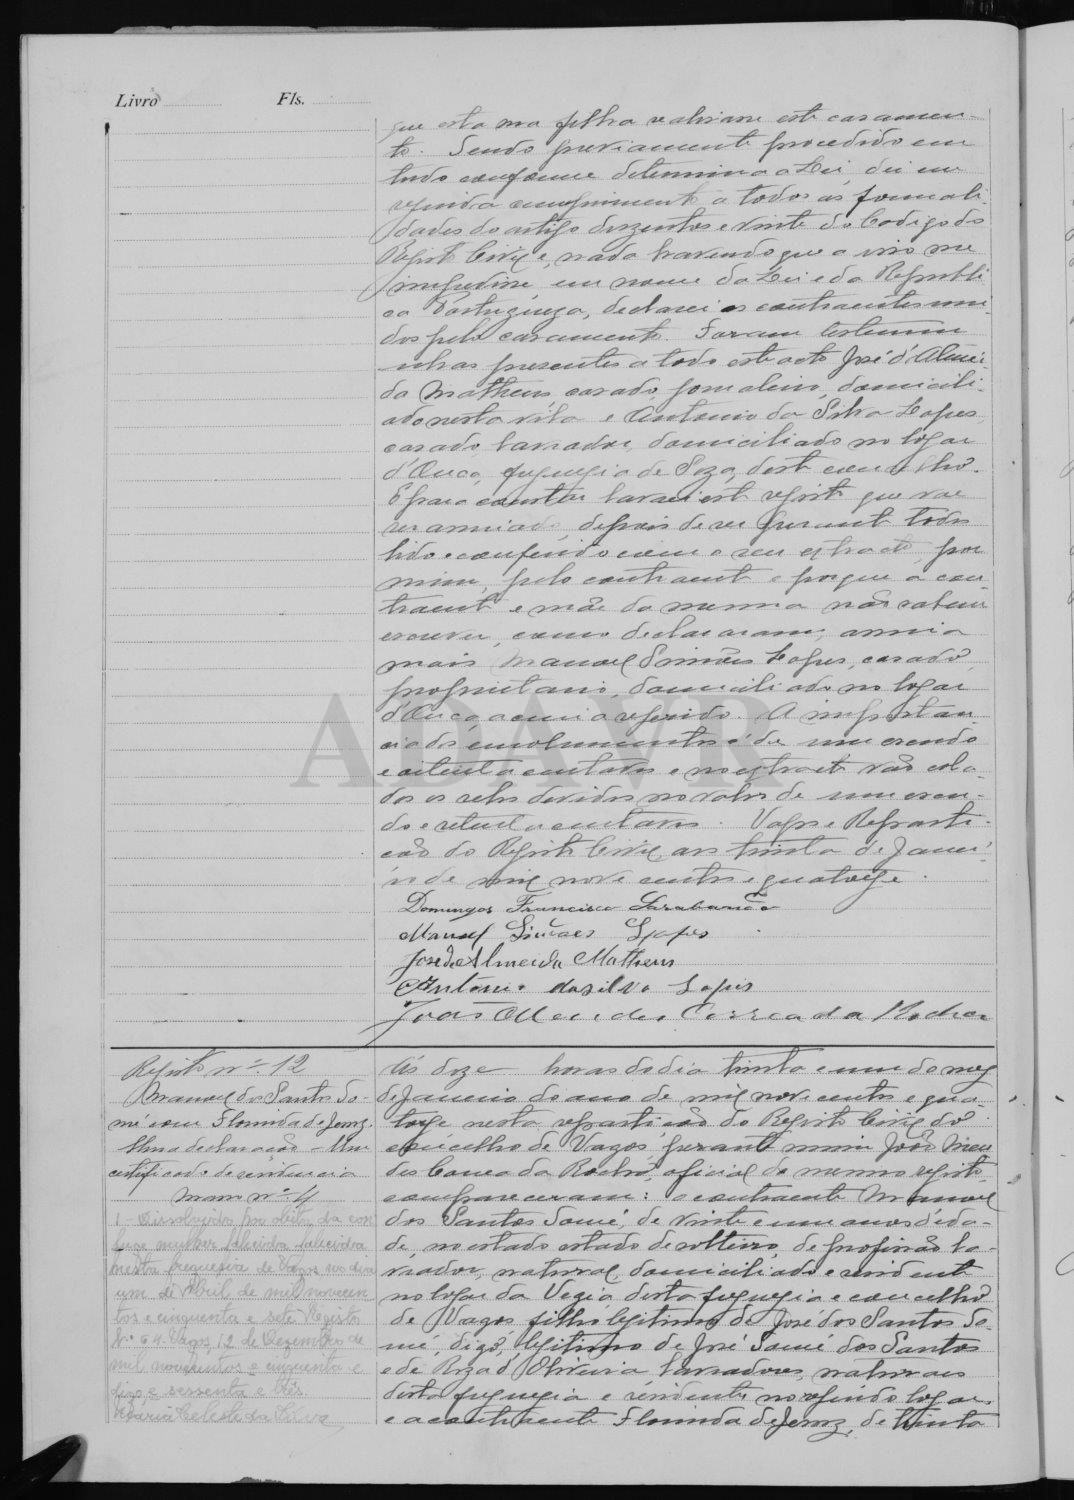 Livro Fls.
que esta sua filha realisasse este casamen-
to. Tendo previamente procedido em
tudo conforme determina a Lei, dei em
seguida cumprimento a todas as formali-
dades do artigo duzentos e vinte do Codigo do
Registo Civil e, nada havendo que a isso me
impedisse em nome da Lei e da Republi-
ca Portugueza, declarei os contraentes uni-
dos pelo casamento. Foram testemu-
nhas presentes a todo este acto José d'Almei-
da Matheus, casado, jornaleiro, domicili-
ado nesta vila e Antonio da Silva Lopes,
casado, lavrador, domiciliado no logar
d'Ouca, freguezia de Soza, deste concelho.
E para constar lavrei este registo que vae
ser assinado, depois de ser perante todos
lido e conferido com o seu extracto, por
mim, pelo contraente e porque a con-
traente e mãe da mesma não sabem
escrever, como declararam, assina
mais Manoel Simões Lopes, casado,
proprietario, domiciliado no logar
d'Ouca acima referido. A importan-
cia dos emolumentos é de um escudo
e oitenta centavos e no extracto vão cola-
dos os selos devidos no valor de um escu-
do e setenta centavos. Vagos e Reparti-
ção do Registo Civil, aos trinta de Janei-
ro de mil nove centos e quatorze.
Domingos Francisco
Manoel Simões Lopes
José de Almeida Matheus
António da Silva Lopes
João Mendes Correa da Rocha
Registo nº 12
Manoel dos Santos So-
mé com Florinda de Jesus.
Uma declaração - Um
certificado de residencia
Maço nº 4
1 - Dissolvido por obito da con-
juge mulher falecida
nesta freguesia de Vagos no dia
um de Abril de mil novecen-
tos e cinquenta e sete Registo
Nº 64. Vagos, 12 de Dezembro de
mil novecentos e cinquenta e
digo, e sessenta e três.
Maria Celeste da Silva
Ás doze horas do dia trinta e um do mez
de Janeiro do ano de mil nove centos e qua-
torze nesta repartição do Registo Civil do
concelho de Vagos, perante mim João Men-
des Correa da Rocha, oficial do mesmo registo,
compareceram: o contraente Manoel
dos Santos Somé, de vinte e um anos d'eda-
de, no estado estado de solteiro, de profissão la-
vrador, natural, domiciliado e residente
no logar da Vegia desta freguezia e concelho
de Vagos filho legitimo de José dos Santos So-
mé, digo, legitimo de José Somé dos Santos
e de Roza d'Oliveira lavradores, naturaes
desta freguezia e residentes no referido logar,
e a contraente Florinda de Jesus, de trinta